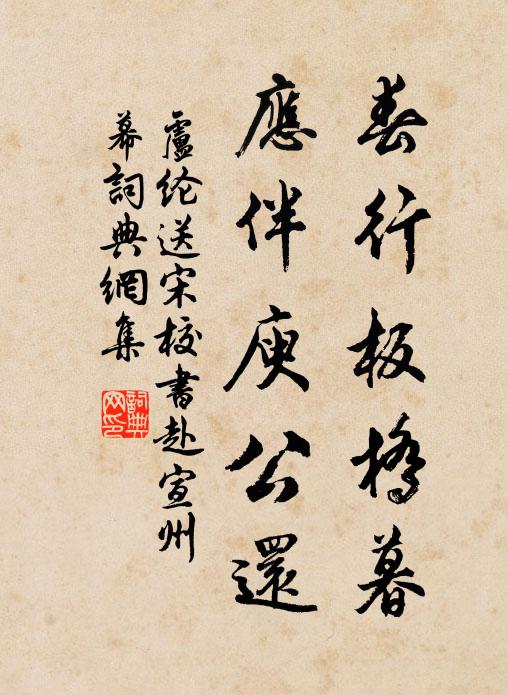 春行板橋暮
應伴庾公還
盧纶送宋校書赴宣州
幕詞典網集
詞典网印